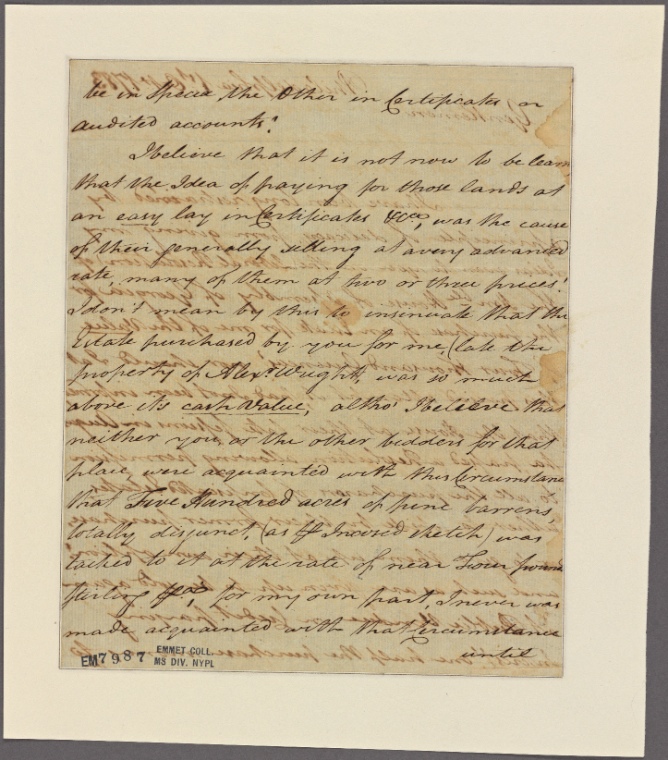 be in Specie, the Other in Certificates, or
audited accounts.
I believe that it is not now to be learn
that the Idea of paying for those lands at
an easy lay in Certificates &ca, was the cause
of their generally selling at a very advanced
rate, many of them at two or three prices.
I don't mean by this to insinuate that the
Estate purchased by you for me, (late the
property of Alexr. Wright, was so much
above its cash Value, altho' I believe that
neither you, or the other bidders for that
place, were acquainted with this Circumstance
that Five Hundred acres of pine barrens,
totally disjunct, (as Incosed sketch) was
tacked to it at the rate of near Four pound
sterling for my own part, I never was
made acquainted with that Circumstance
until
EM7987
EMMET COLL.
MS DIV. NYPL